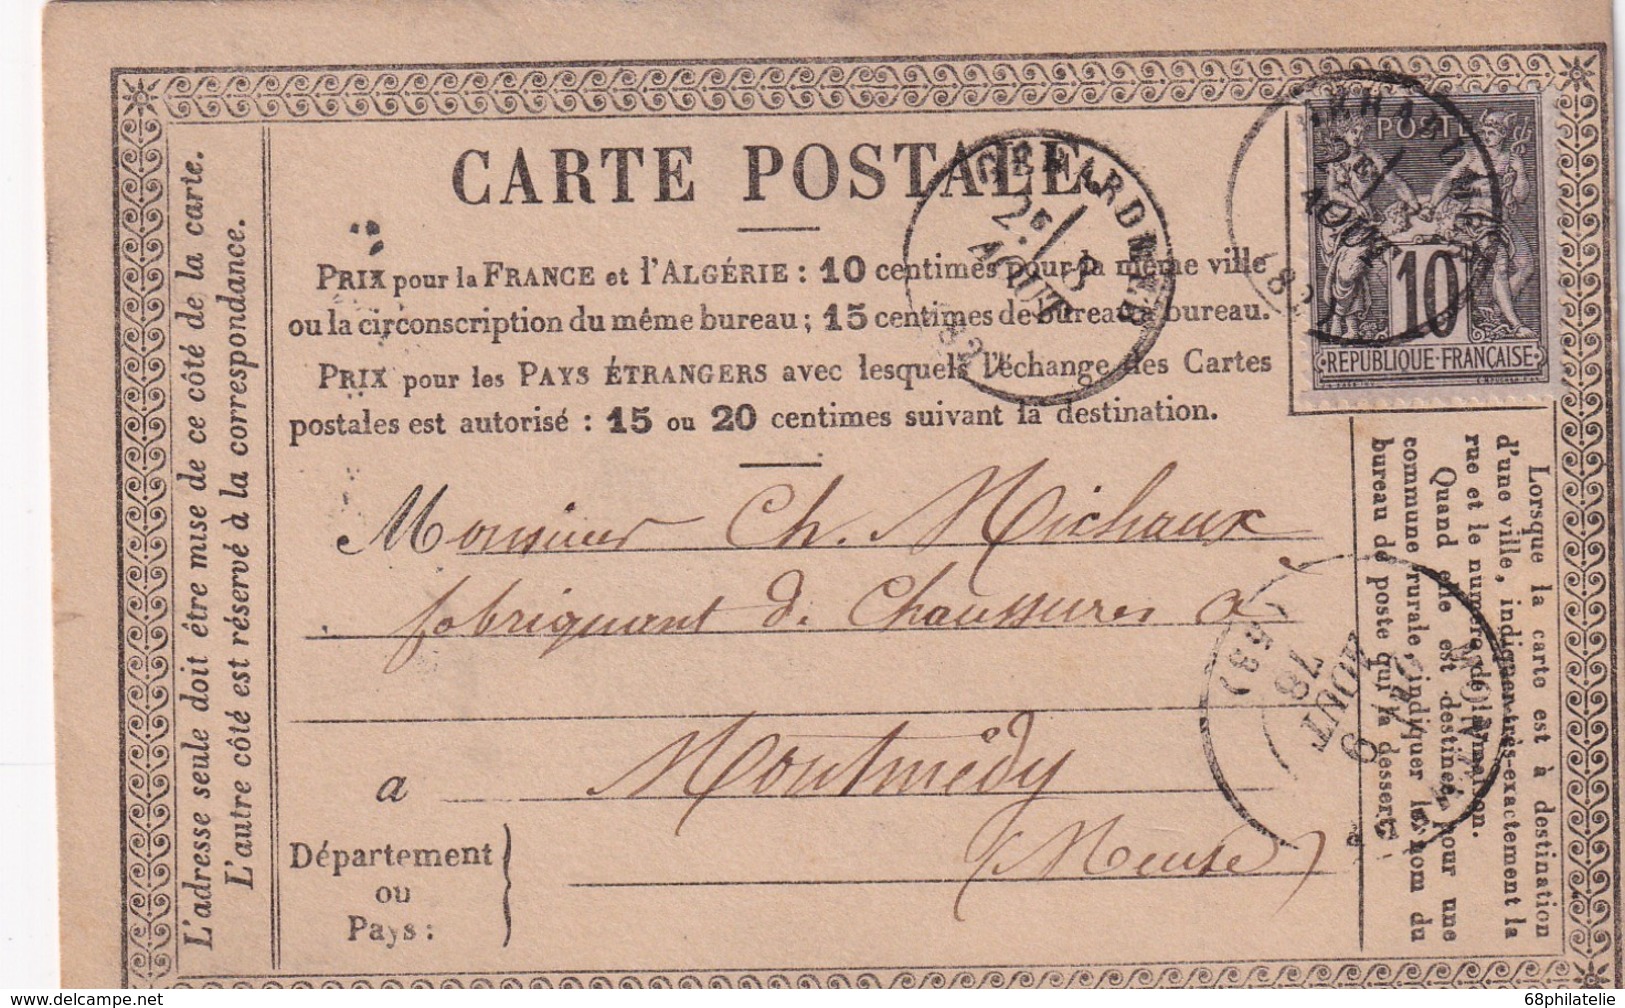 CARTE POSTALE
PRIX pour la FRANCE et l'ALGÉRIE : 10 centimes pour la même ville
ou la circonscription du même bureau ; 15 centimes de bureau à bureau.
PRIX pour les PAYS ÉTRANGERS avec lesquels l'échange des Cartes
postales est autorisé : 15 ou 20 centimes suivant la destination.
Monsieur Ch. Michaux
fabriquant de Chaussures à
a Montmédy
(Meuse)
Département
ou
Pays :
L'adresse seule doit être mise de ce côté de la carte.
L'autre côté est réservé à la correspondance.
Lorsque la carte est à destination
d'une ville, indiquer très-exactement la
rue et le numéro de la maison.
Quand elle est destinée pour une
commune rurale, indiquer le nom du
bureau de poste qui la dessert.
POSTE
10
RÉPUBLIQUE·FRANÇAISE
GERARDMER
2E
8
AOUT
(82)
2E
AOUT
(82)
9
AOUT
78
(53)
68philatelie
www.delcampe.net